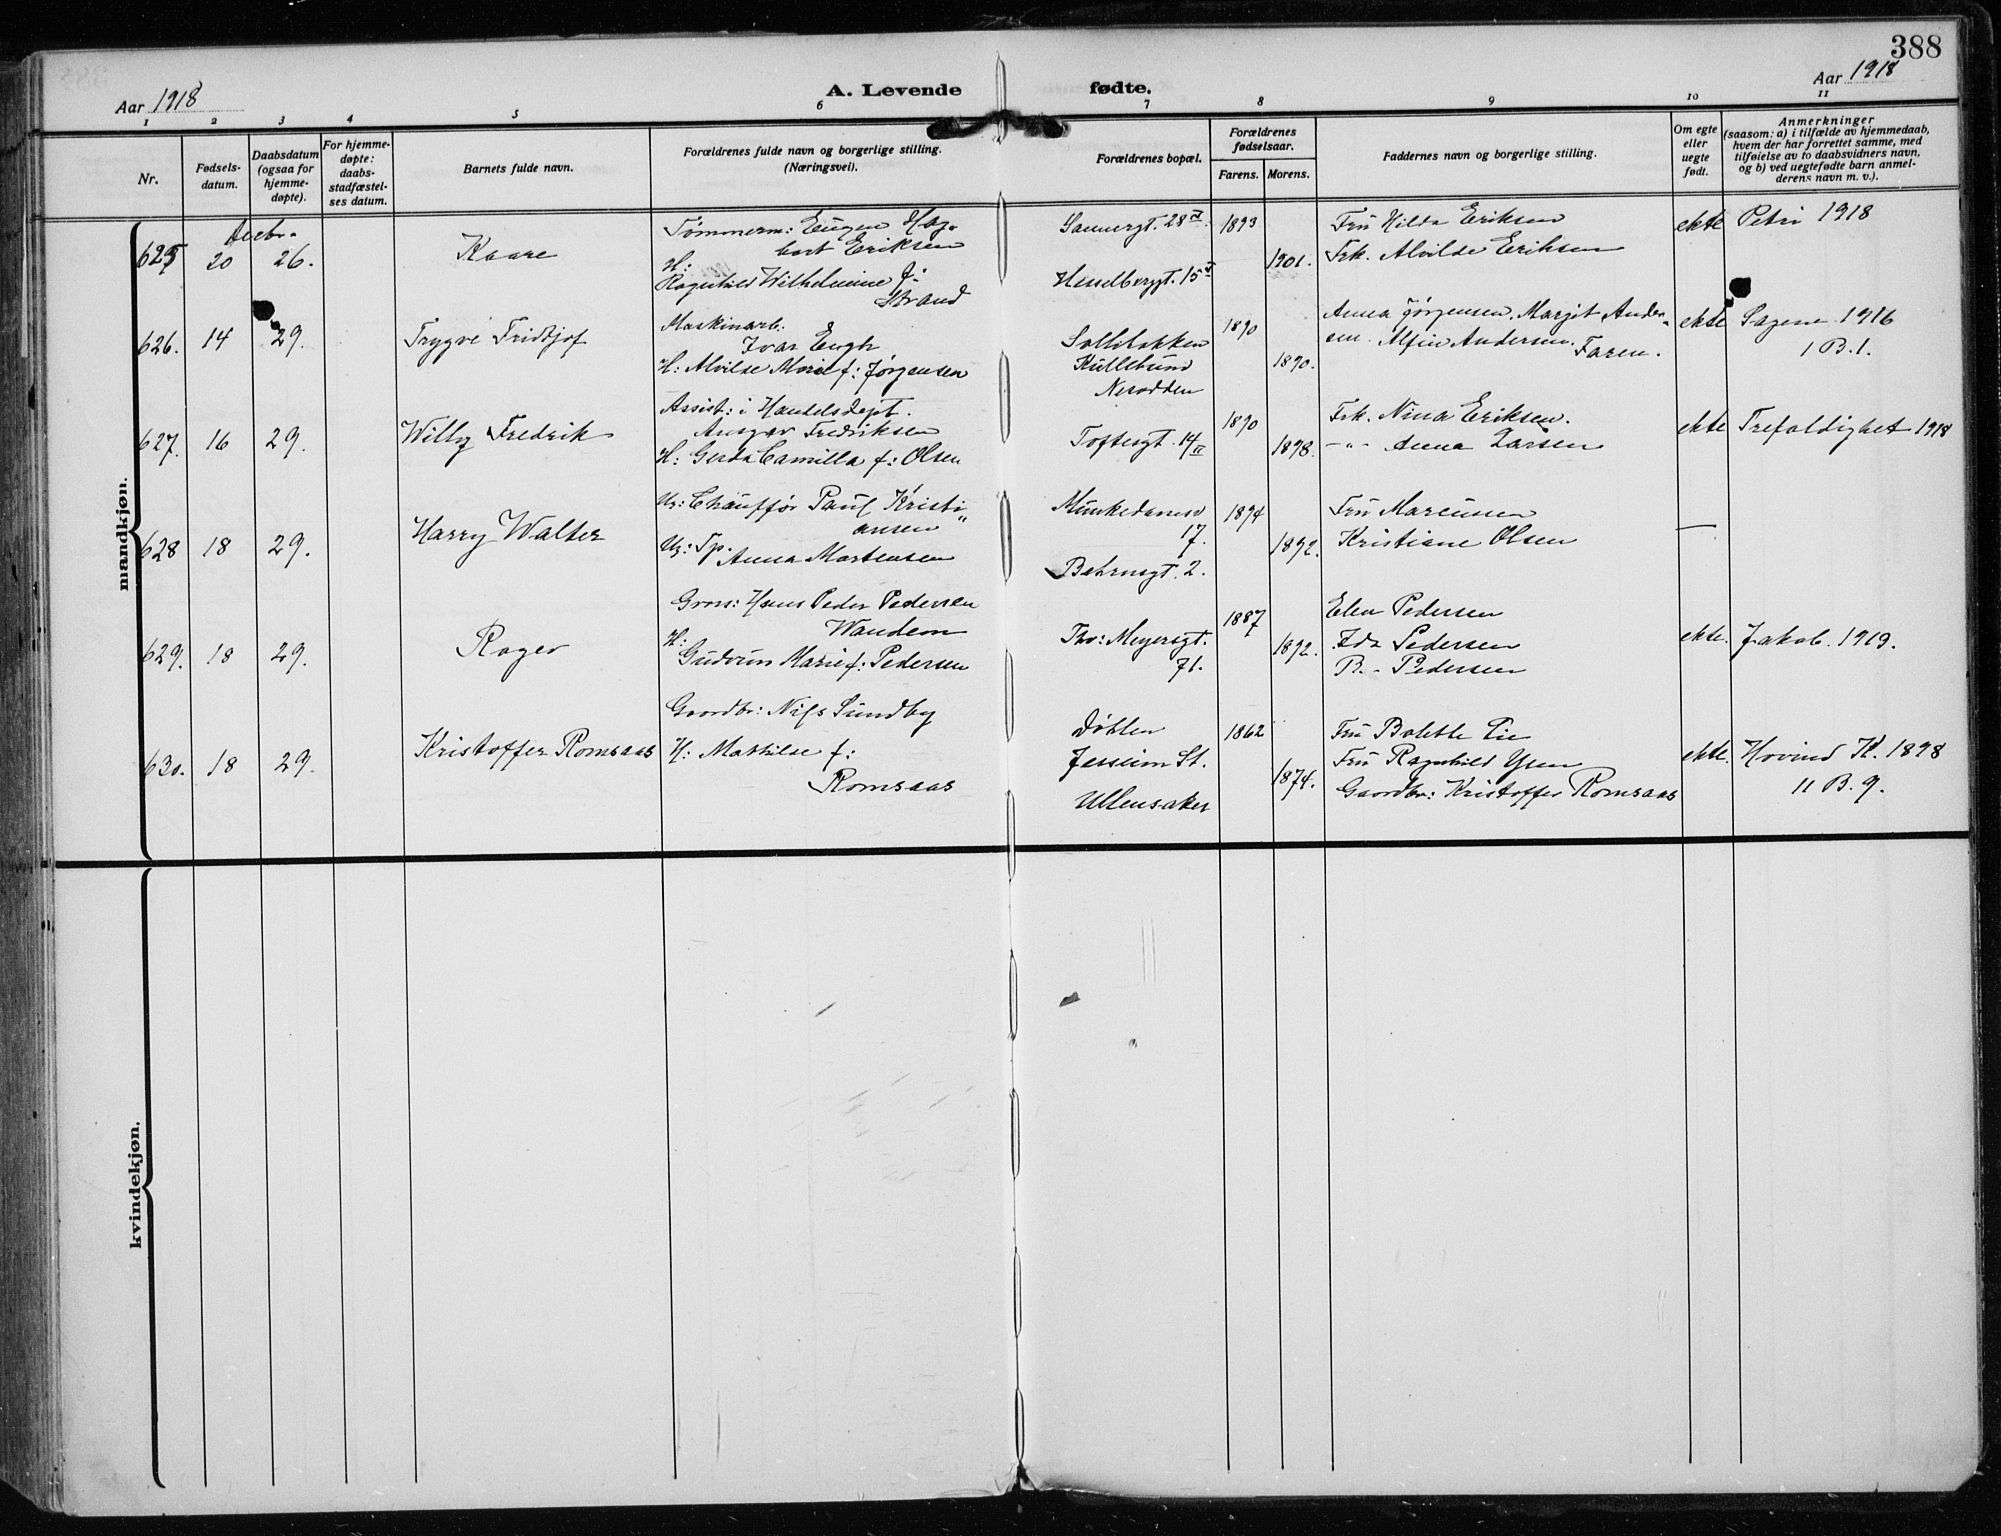 388
Aar 1918
A. Levende fødte.
Aar 1918
1 2 3 4 5 6 7 8 9 10 11
Nr.
Fødsels-
datum.
Daabsdatum
(ogsaa for
hjemme-
døpte).
For hjemme-
døpte:
daabs-
stadfæstel-
ses datum.
Barnets fulde navn.
Forældrenes fulde navn og borgerlige stilling.
(Næringsvei).
Forældrenes bopæl.
Forældrenes
fødselsaar.
Farens. Morens.
Faddernes navn og borgerlige stilling.
Om egte
eller
uegte
født.
Anmerkninger
(saasom: a) i tilfælde av hjemmedaab,
hvem der har forrettet samme, med
tilføielse av to daabsvidners navn,
og b) ved uegtefødte barn anmel-
derens navn m. v.).
mandkjøn.
Decbr.
625 20 26.
Kaare
Tømmerm: Eugen Hag-
bart Eriksen
H:
Ragnhild Wilhelmine f:
Strand
Sannergt. 28
Hesselbergt. 15
1893
1901.
Fru Hilda Eriksen
Frk. Alvilde Eriksen
ekte
Petri 1918
626. 14 29.
Trygve Fridtjof
Maskinarb.
Ivar Engh
H: Alvilde Marie f: Jørgensen
Sollibakken
Nesodden
1890
1890.
Anna Jørgensen. Margit Ander-
sen. Alfin Andersen.
Faren.
ekte
Sagene 1916
1 B. 1.
627. 16 29.
Willy Fredrik
Assist: i Handelsdept.
Ansgar Fredriksen
H: Gerda Camilla f: Olsen
Toftesgt. 14 II
1890
1898.
Frk. Nina Eriksen.
-"- Anna Larsen
ekte
Trefoldighet 1918
628 18 29.
Harry Walter
Ur: Chauffør Paul Kristi-
ansen
Ur: Tp.
Anna Martensen
Munkedamsv
17.
Behrnsgt. 2.
1894
1892.
Fru Marcussen
Kristiane Olsen
—
629. 18 29.
Roger
Gros: Hans Peder Pedersen
Wandem
H:
Gudrun Marie f: Pedersen
Thv: Meyersgt.
71.
1887
1892.
Elen Pedersen
Ida Pedersen
R. Pedersen
ekte.
Jakob. 1913.
630. 18 29.
Kristoffer Romsaas
Gaardbr: Nils Sundby
H: Mathilde f:
Romsaas
Døhlen
Jessheim St.
Ullensaker
1862
1874.
Fru Bolette Lie
Fru Ragnhild Ysen
Gaardbr: Kristoffer Romsaas
ekte.
Hovind K. 1898
11 B. 9.
kvindekjøn.